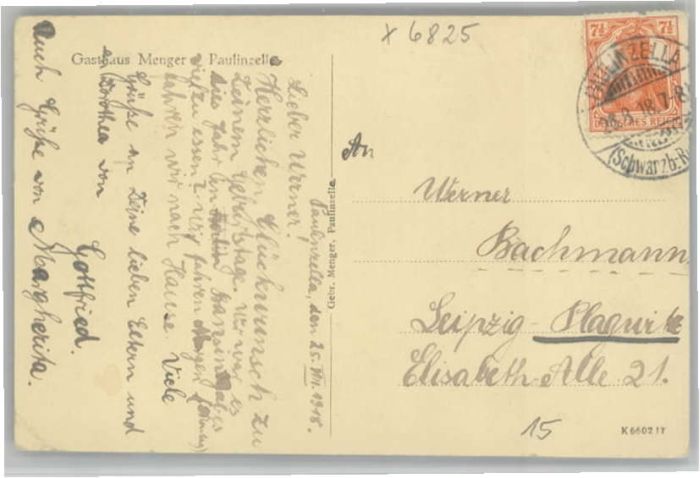 x 6825
Gasthaus Menger Paulinzella
7½ 7½
PAULINZELLA
DEUTSCHES REICH
(Schwarzb.-R
Paulinzella, den 25. VIII. 1918.
Lieber Werner!
Herzlichen Glückwunsch zu
Deinem Geburtstage. Wir
dies Jahr
viel zu essen. Wir fahren morgen
fahren wir nach Hause. Viele
Grüße an Deine lieben Eltern und
Dorothea von
Gottfried.
Auch Grüße von Margherita.
Gebr. Menger, Paulinzella
An
Werner
Bachmann
Leipzig-Plagwitz
Elisabeth-Alle 21.
15
K 6602 17